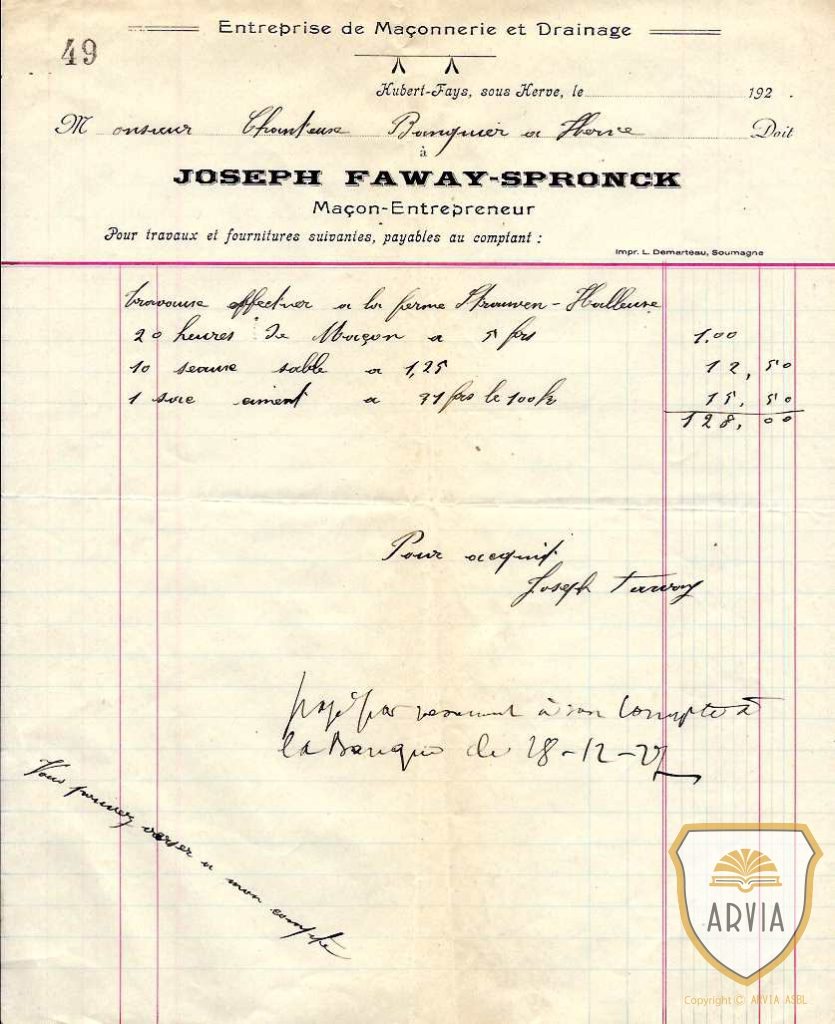 Entreprise de Maçonnerie et Drainage
49
Hubert-Fays, sous Herve, le 192 .
Monsieur Chanteuse Banquier a Herve Doit
à
JOSEPH FAWAY-SPRONCK
Maçon-Entrepreneur
Pour travaux et fournitures suivantes, payables au comptant :
Impr. L. Demarteau, Soumagne
travause effectuer a la ferme Strouven-Halleuse
20 heures de Maçon a 5 frs 1.00
10 seause sable a 1,25 12,50
1 saie ciment a 31 frs le 100k 15.50
128,00
Pour acquit
Joseph Faway
payé par versement à son Compte à
la Banque le 28-12-27
Vous pouvez verser a mon compte
ARVIA
Copyright © ARVIA ASBL